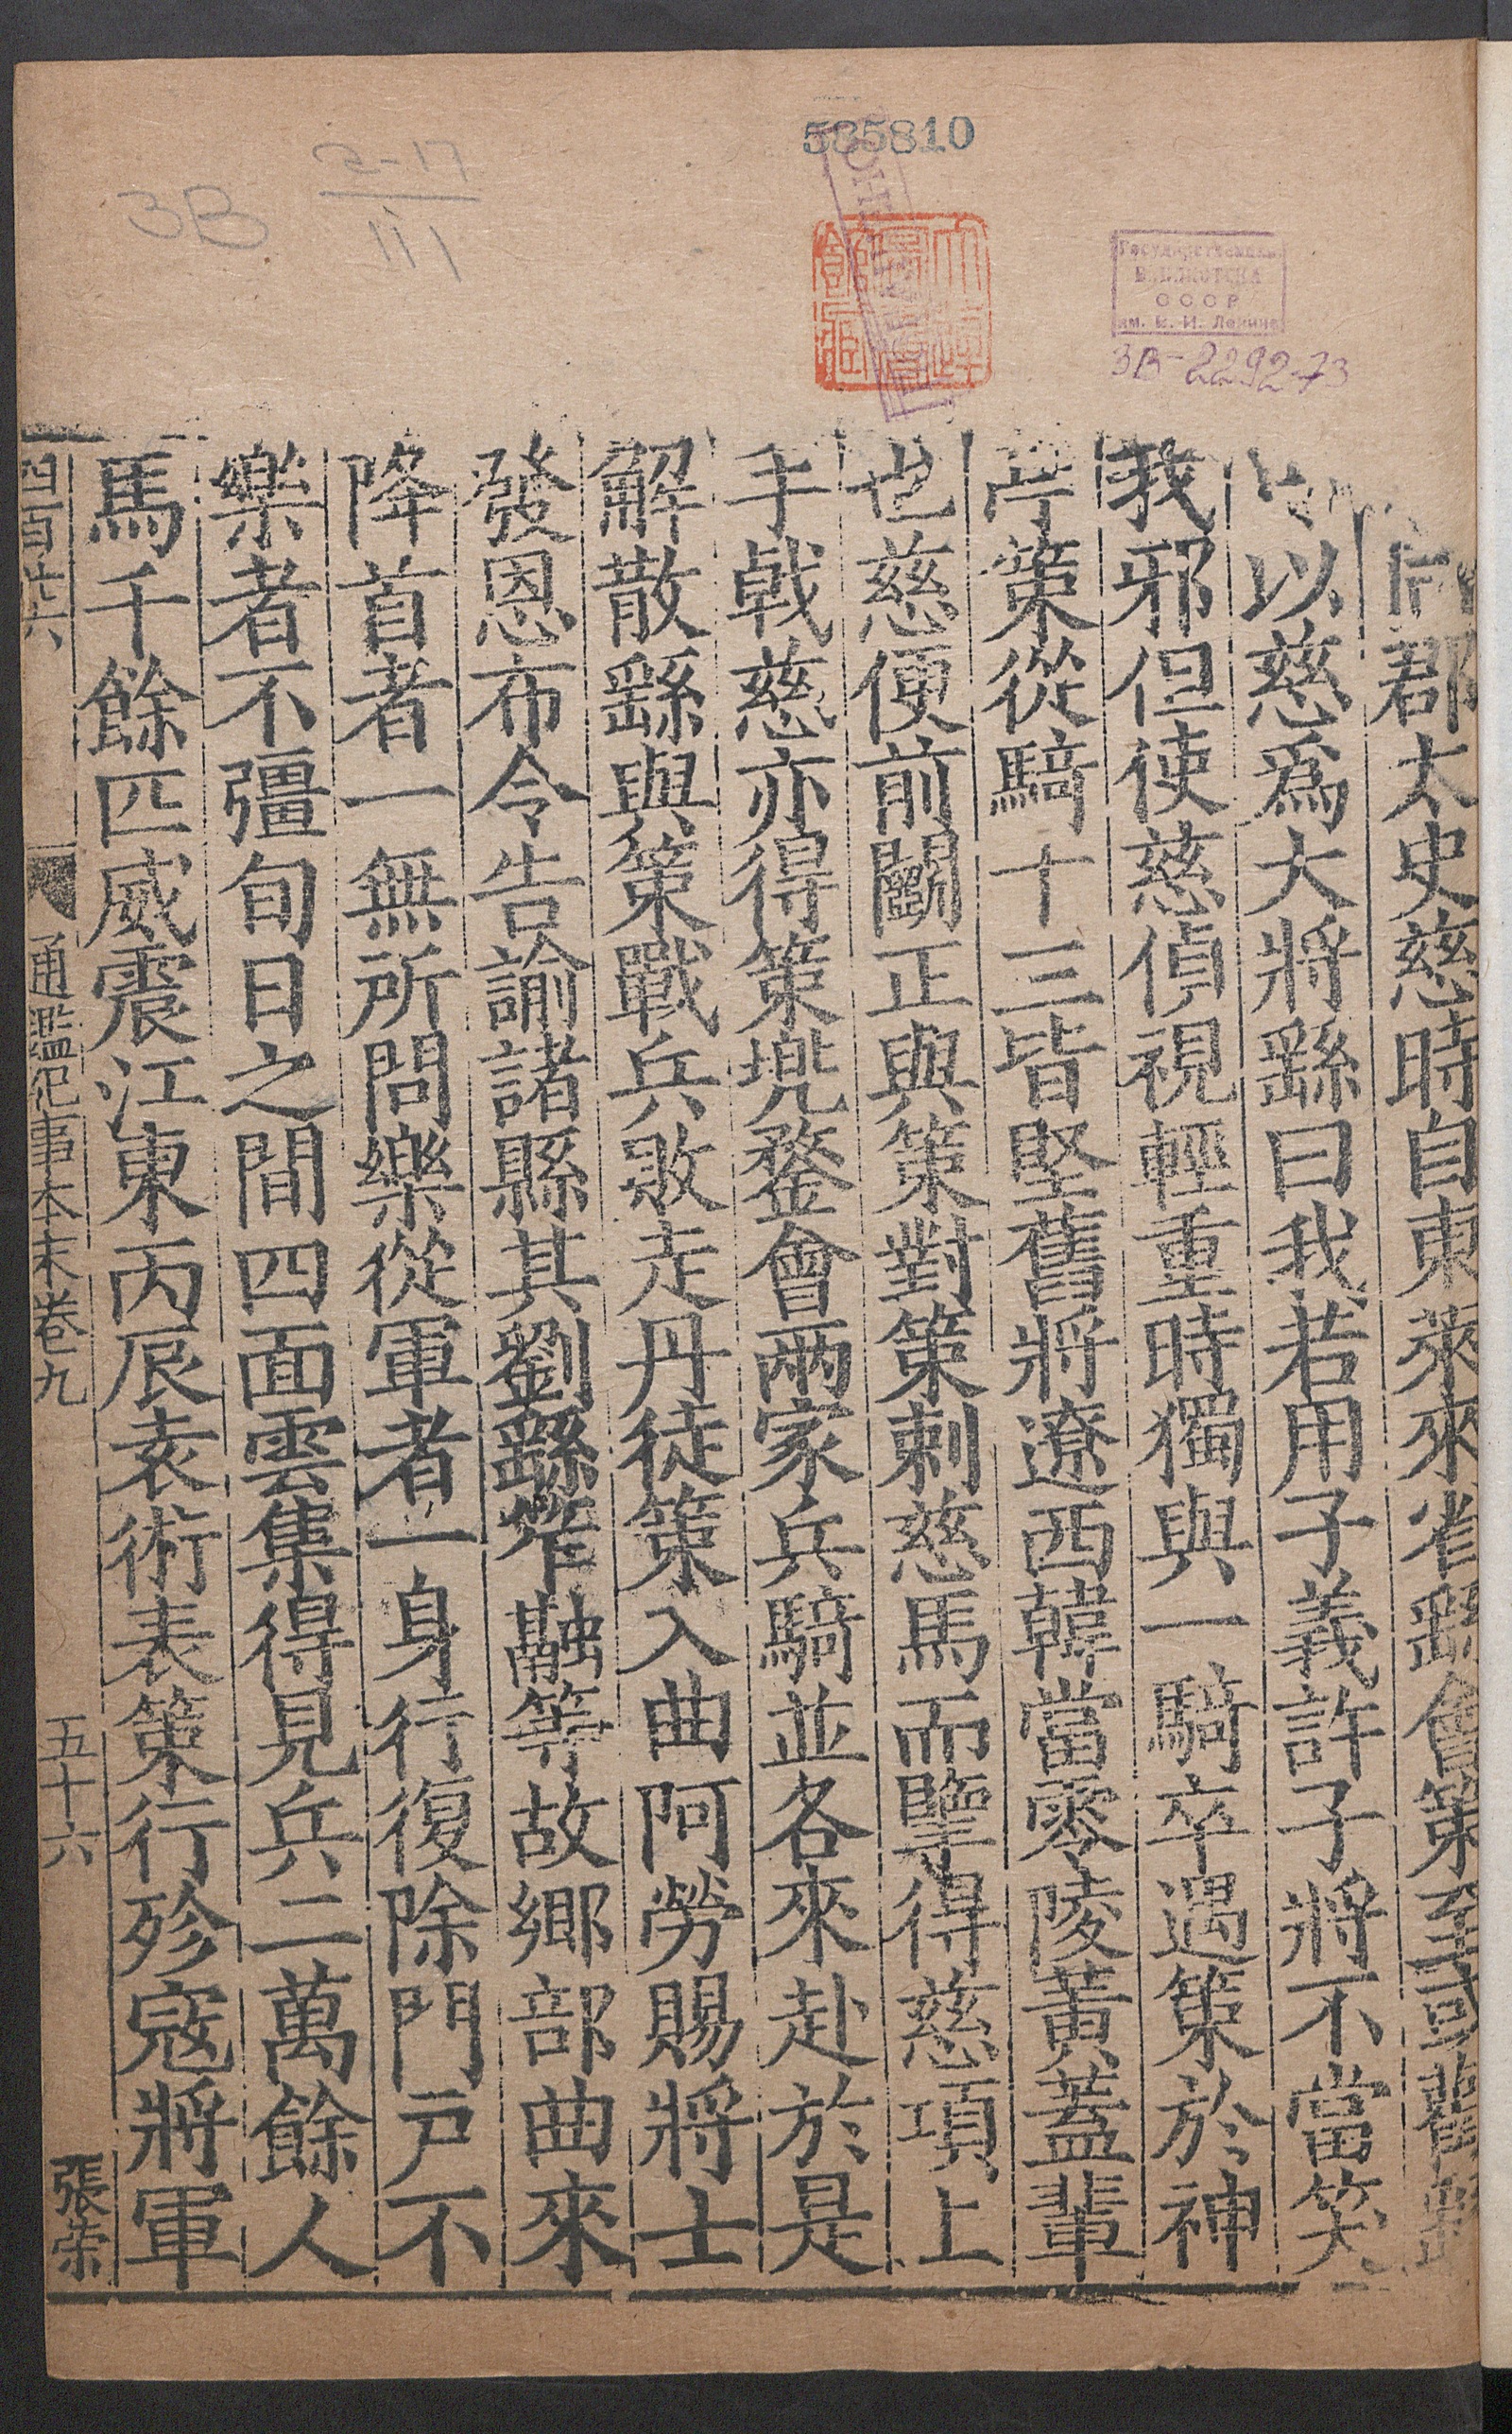 585810
3В
2-17
III
Государственная
БИБЛИОТЕКА
СССР
им. В. И. Ленина
3В-22927-3
同郡太史慈時自東萊來省繇會策至或勸繇
以慈爲大將繇曰我若用子義許子將不當笑
我邪但使慈偵視輕重時獨與一騎卒遇策於神
亭策從騎十三皆堅舊將遼西韓當零陵黃蓋輩
也慈便前鬭正與策對策刺慈馬而擥得慈項上
手戟慈亦得策兠鍪會兩家兵騎並各來赴於是
解散繇與策戰兵敗走丹徒策入曲阿勞賜將士
發恩布令告諭諸縣其劉繇笮融等故鄉部曲來
降首者一無所問樂從軍者一身行復除門戶不
樂者不彊旬日之間四面雲集得見兵二萬餘人
馬千餘匹威震江東丙辰袁術表策行殄寇將軍
四百七六
通鑑紀事本末卷九
五十六
張榮